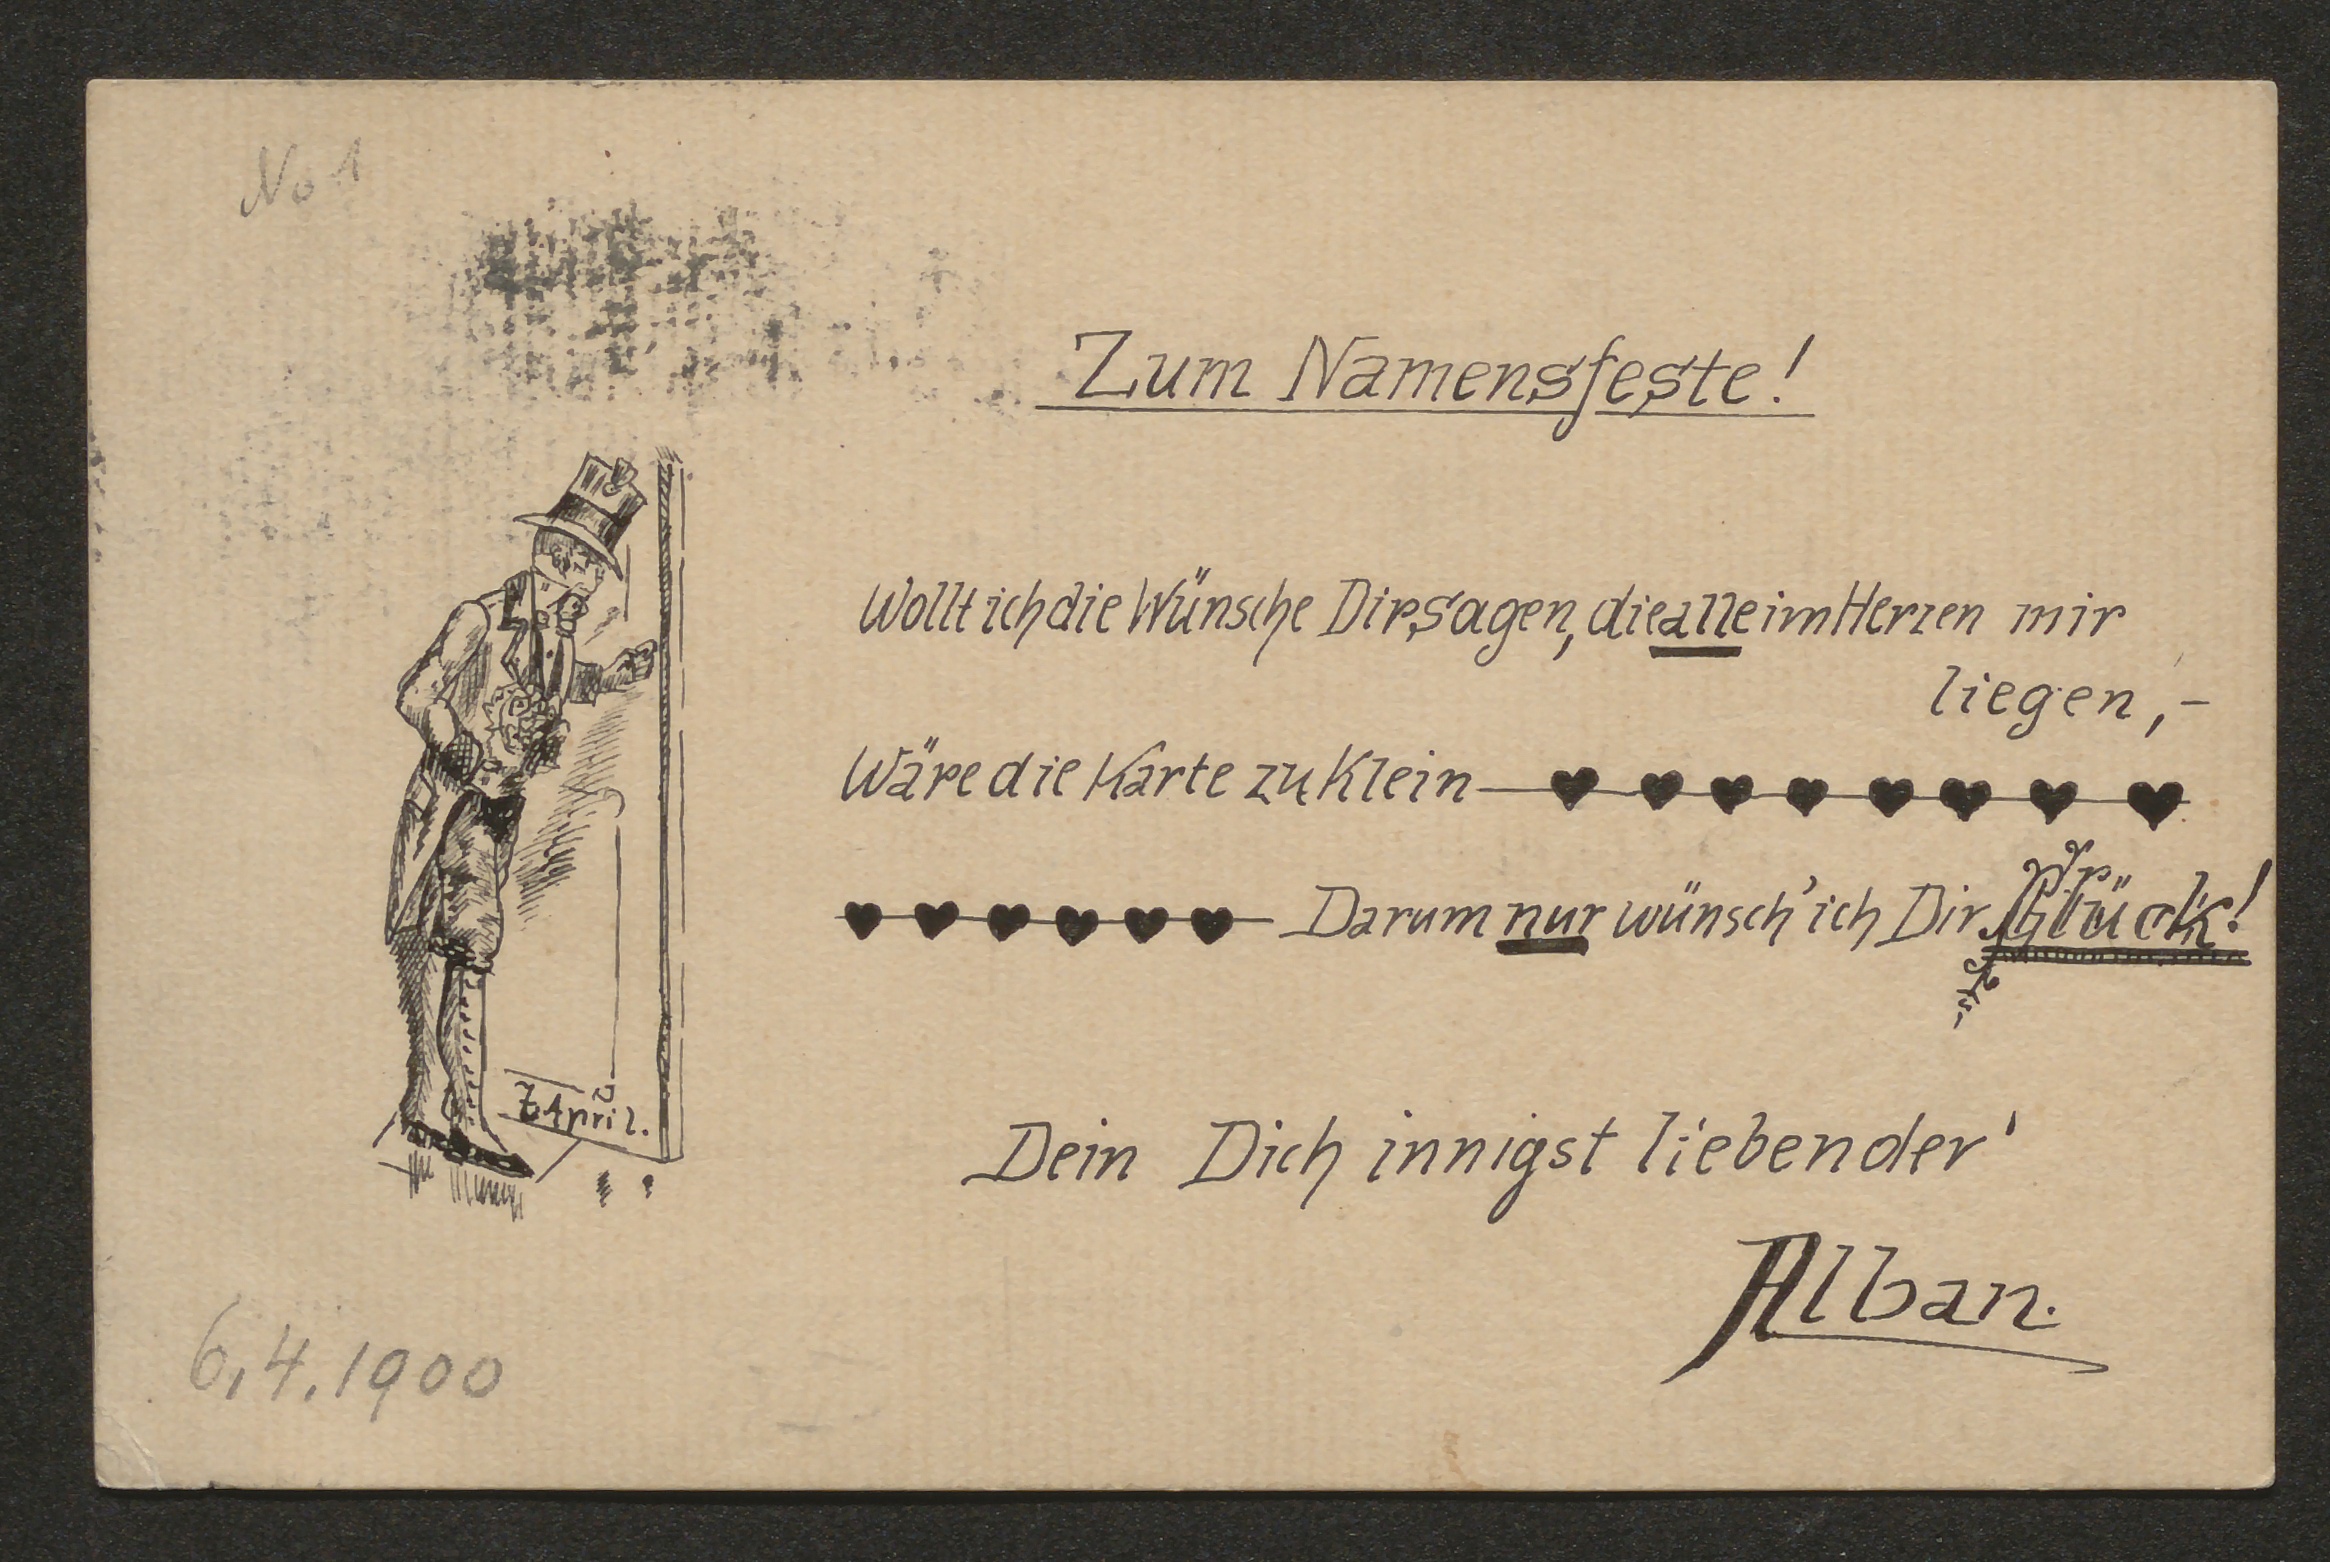 No 1
Zum Namensfeste!
Wollt ich die Wünsche Dir sagen, die alle im Herzen mir
liegen,-
Wäre die Karte zu klein—♥♥♥♥♥♥♥♥
♥♥♥♥♥♥—Darum nur wünsch' ich Dir Glück!
April.
Dein Dich innigst liebender
Alban.
6.4.1900